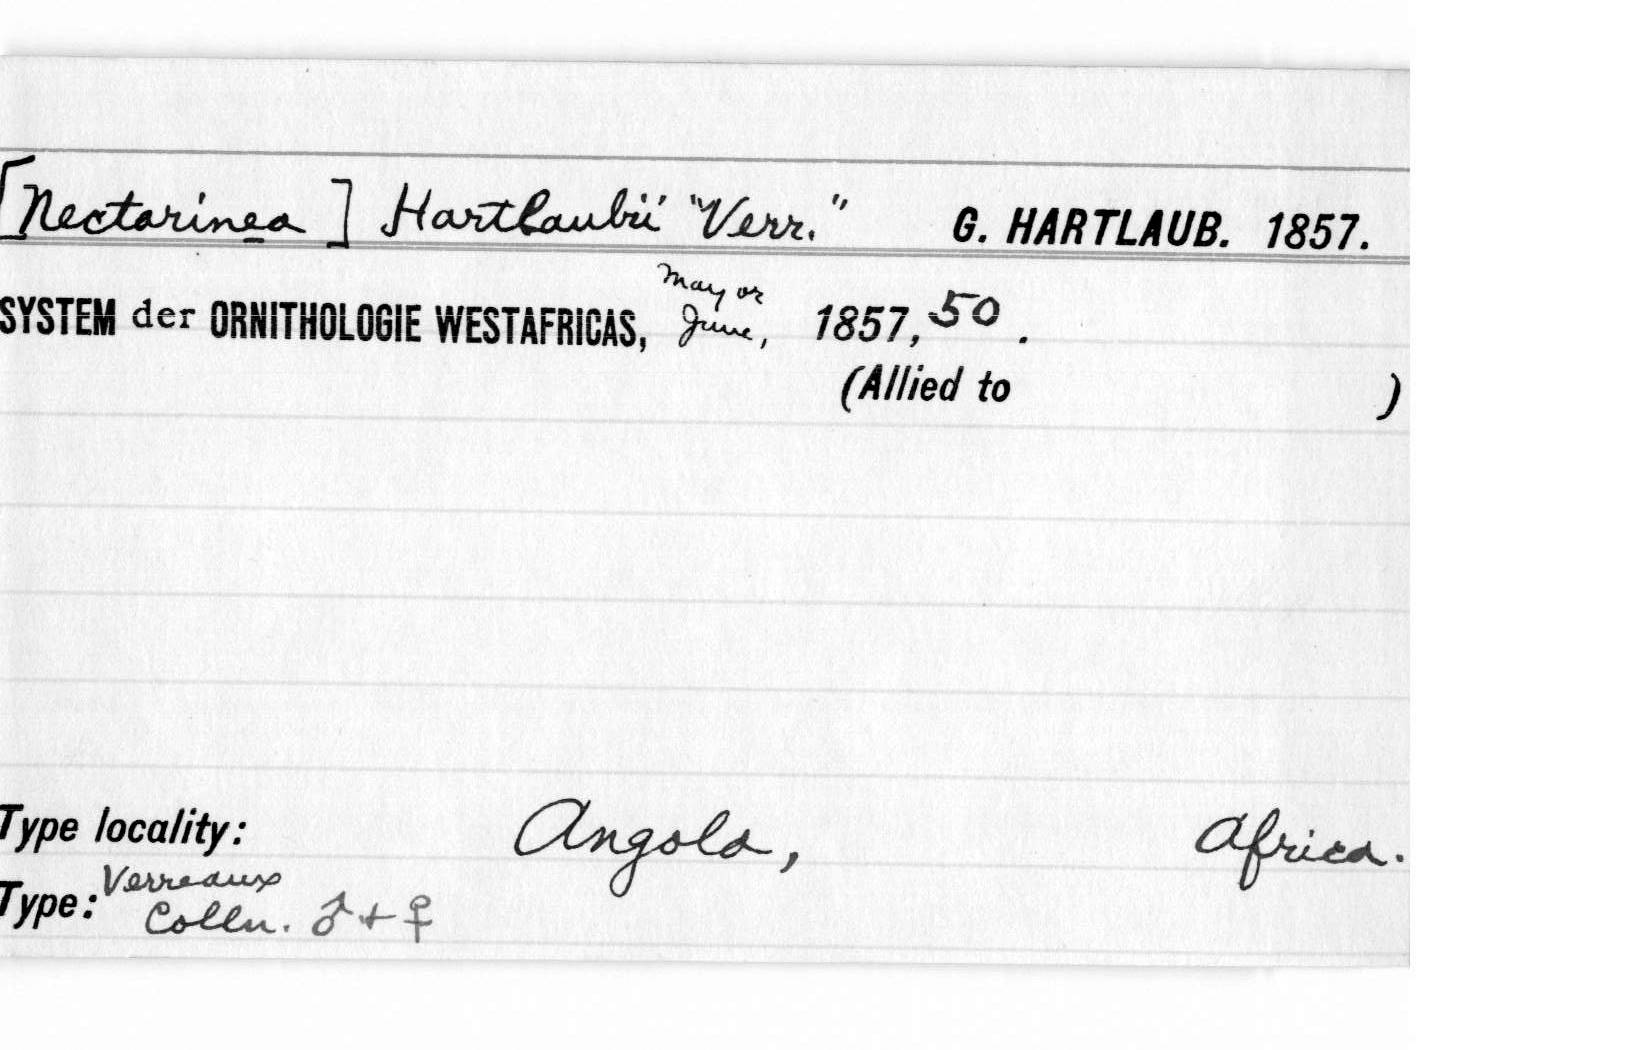 [Nectarinea] Hartlaubii "Verr." G. HARTLAUB. 1857.
SYSTEM der ORNITHOLOGIE WESTAFRICAS, May or June, 1857, 50.
(Allied to )
Type locality: Angola, Africa.
Type: Verreaux Colln. ♂ + ♀